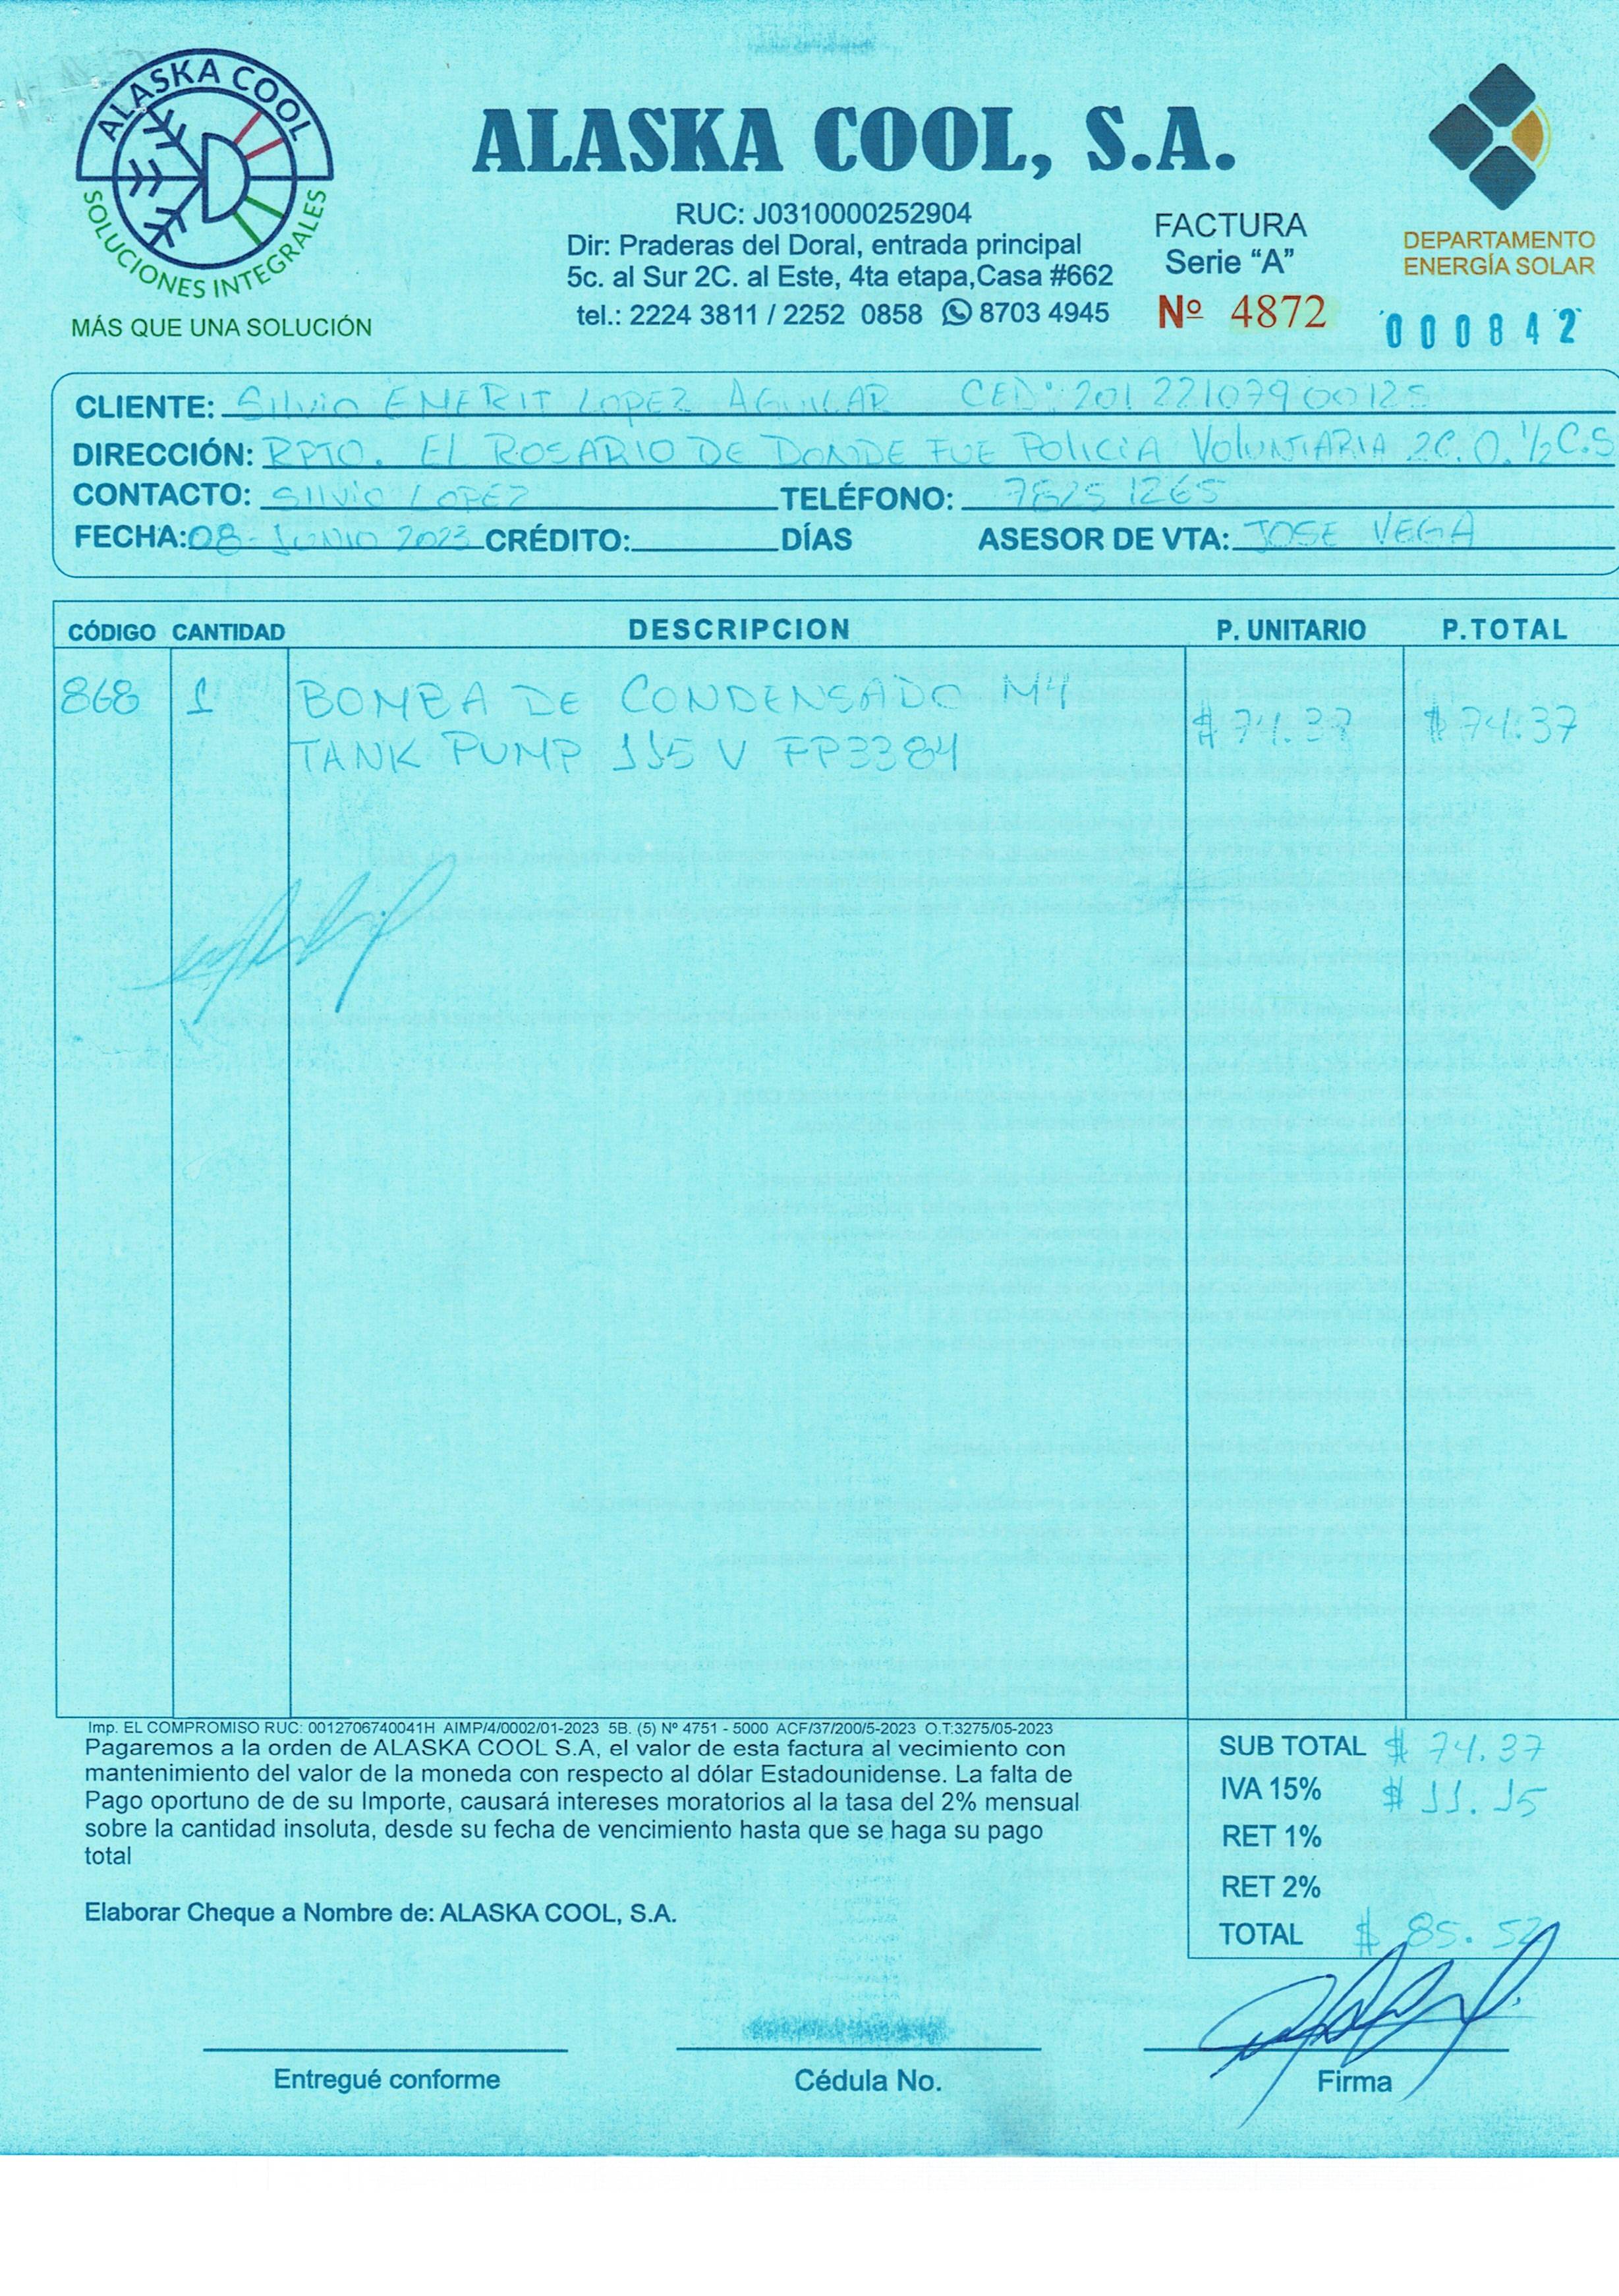 ALASKA COOL
SOLUCIONES INTEGRALES
MÁS QUE UNA SOLUCIÓN
ALASKA COOL, S.A.
RUC: J0310000252904
Dir: Praderas del Doral, entrada principal
5c. al Sur 2C. al Este, 4ta etapa,Casa #662
tel.: 2224 3811 / 2252 0858 8703 4945
FACTURA
Serie “A”
Nº 4872
DEPARTAMENTO
ENERGÍA SOLAR
000842
CLIENTE: Silvio EMERIT LOPEZ AGUILAR CED: 201 221079 00125
DIRECCIÓN: RPTO. EL ROSARIO DE DONDE FUE POLICIA VOLUNTARIA 2C.O. ½ C.S
CONTACTO: SILVIO LOPEZ TELÉFONO: 7825 1265
FECHA: 08-JUNIO 2023 CRÉDITO: DÍAS ASESOR DE VTA: JOSE VEGA
CÓDIGO CANTIDAD DESCRIPCION P. UNITARIO P.TOTAL
868 1 BOMBA DE CONDENSADO M4 $74.37 $74.37
TANK PUMP 115 V FP3384
Imp. EL COMPROMISO RUC: 0012706740041H AIMP/4/0002/01-2023 5B. (5) Nº 4751 - 5000 ACF/37/200/5-2023 O.T:3275/05-2023
Pagaremos a la orden de ALASKA COOL S.A, el valor de esta factura al vecimiento con
mantenimiento del valor de la moneda con respecto al dólar Estadounidense. La falta de
Pago oportuno de de su Importe, causará intereses moratorios al la tasa del 2% mensual
sobre la cantidad insoluta, desde su fecha de vencimiento hasta que se haga su pago
total
Elaborar Cheque a Nombre de: ALASKA COOL, S.A.
SUB TOTAL $ 74.37
IVA 15% $ 11.15
RET 1%
RET 2%
TOTAL $ 85.52
Entregué conforme
Cédula No.
Firma